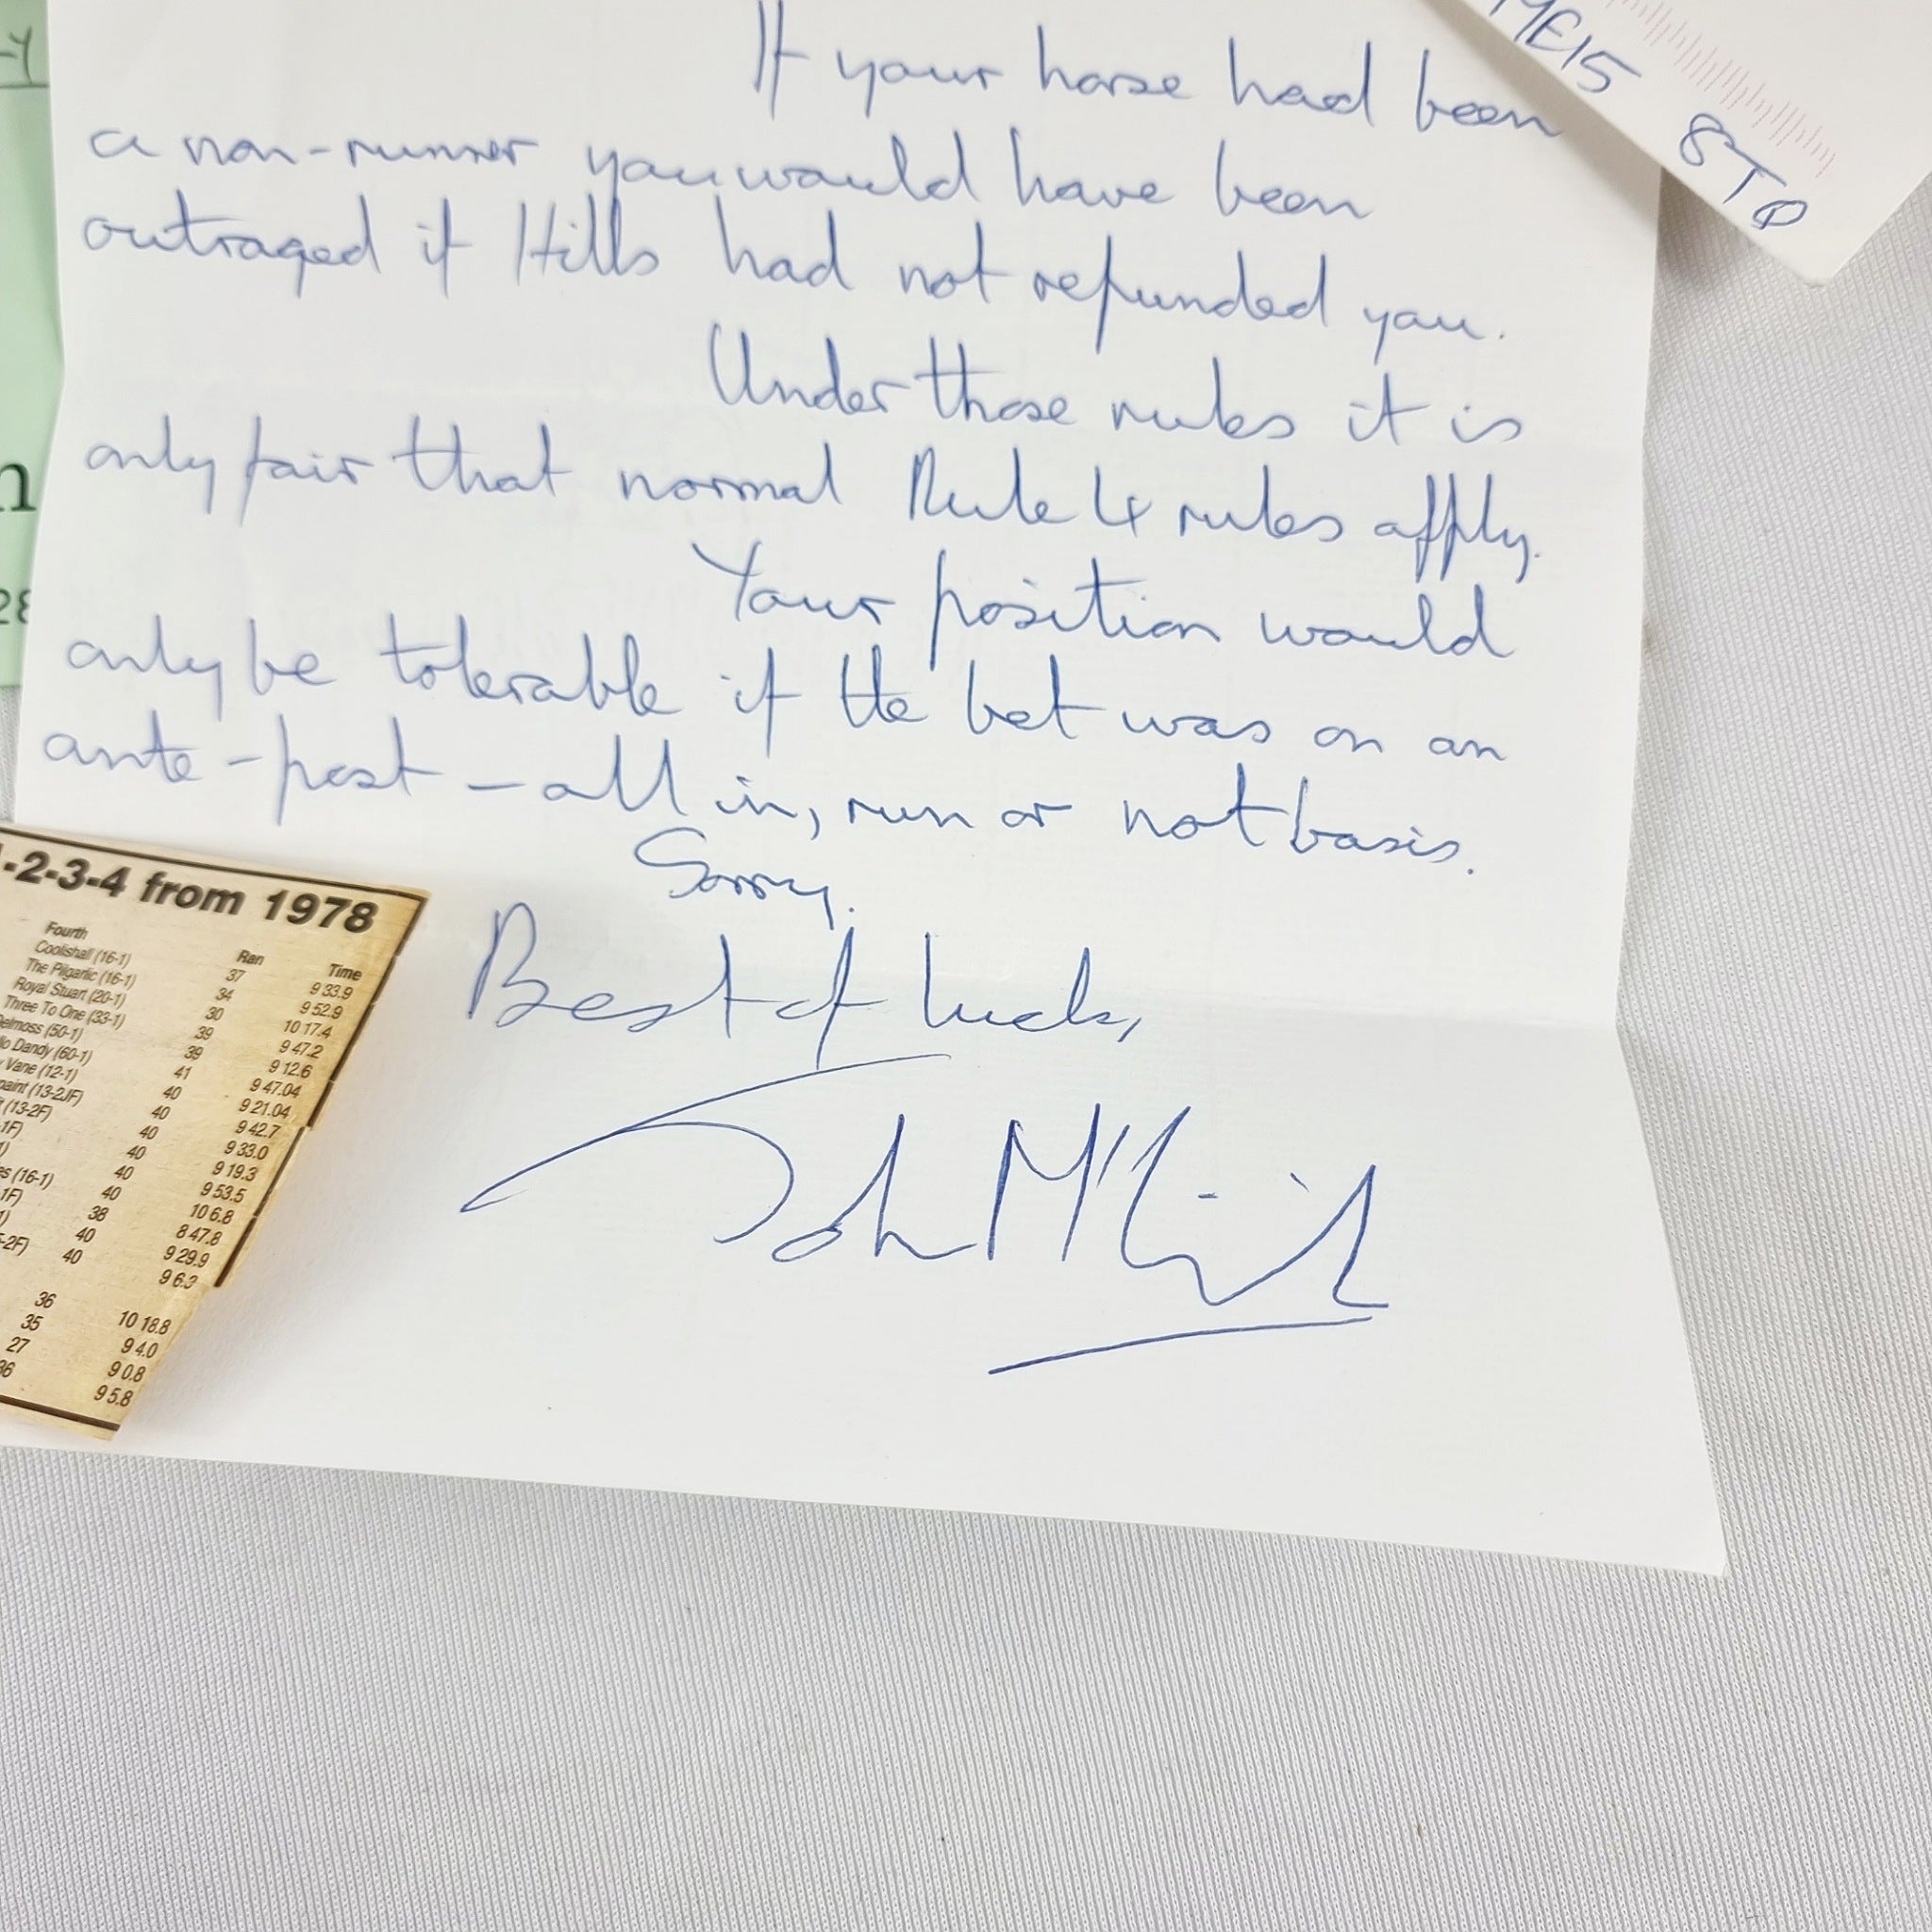 If your horse had been
a non-runner you would have been
outraged if Hills had not refunded you.
Under those rules it is
only fair that normal Rule 4 rules apply.
Your position would
only be tolerable if the bet was on an
ante-post - all in, run or not basis.
Sorry.
Best of luck,
John
ME15
8TQ
1-2-3-4 from 1978
Fourth Ran Time
Coolishall (16-1) 37 9 33.9
The Pilgarlic (16-1) 34 9 52.9
Royal Stuart (20-1) 30 10 17.4
Three To One (33-1) 39 9 47.2
Delmoss (50-1) 39 9 12.6
Dandy (60-1) 41 9 47.04
Vane (12-1) 40 9 21.04
(13-2JF) 40 9 42.7
(13-2F) 40 9 33.0
-1F) 40 9 19.3
1) 40 9 53.5
es (16-1) 40 10 6.8
-1F) 38 8 47.8
1) 40 9 29.9
-2F) 40 9 6.3
36 10 18.8
35 9 4.0
27 9 0.8
36 9 5.8
-Y
n
28